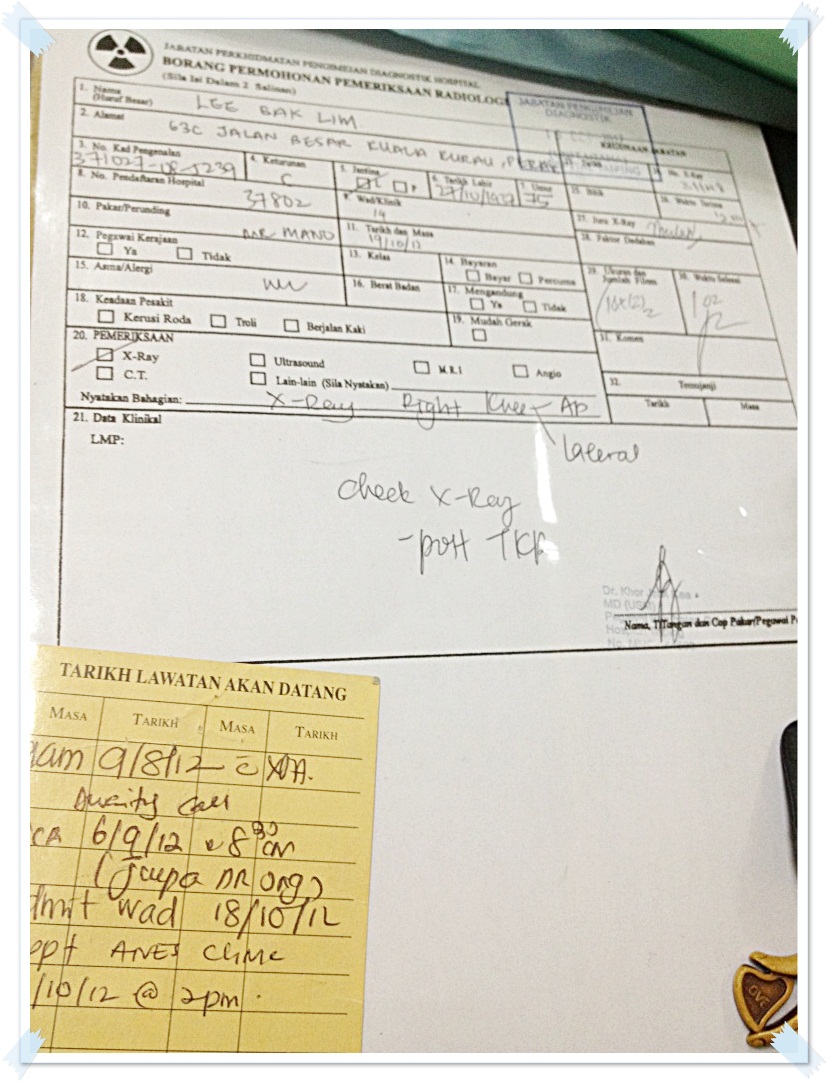 JABATAN PERKHIDMATAN PENGIMEJAN DIAGNOSTIK HOSPITAL
BORANG PERMOHONAN PEMERIKSAAN RADIOLOGI
(Sila Isi Dalam 2 Salinan)
JABATAN PENGIMEJAN
DIAGNOSTIK
KEGUNAAN JABATAN
1. Nama
(Huruf Besar)
LEE BAK LIM
2. Alamat
63C JALAN BESAR KUALA KURAU, PERAK
3. No. Kad Pengenalan
371027-08-5239
4. Keturunan
C
5. Jantina
L P
6. Tarikh Lahir
27/10/1937
7. Umur
75
8. No. Pendaftaran Hospital
37802
9. Wad/Klinik
14
10. Pakar/Perunding
DR MANO
11. Tarikh dan Masa
19/10/12
12. Pegawai Kerajaan
Ya Tidak
13. Kelas
14. Bayaran
Bayar Percuma
15. Asma/Alergi
16. Berat Badan
17. Mengandung
Ya Tidak
18. Keadaan Pesakit
Kerusi Roda Troli Berjalan Kaki
19. Mudah Gerak
20. PEMERIKSAAN
X-Ray Ultrasound M.R.I Angio
C.T. Lain-lain (Sila Nyatakan)
Nyatakan Bahagian: X-Ray Right Knee - AP
lateral
25. Bilik
26. Waktu Terima
27. Juru X-Ray
28. Faktor Dedahan
29. Ukuran dan
Jumlah Filem
30. Waktu Selesai
31. Komen
32. Temujanji
Tarikh Masa
21. Data Klinikal
LMP:
check X-Ray
- post TKR
Dr. Khor
MD
Nama, T/Tangan dan Cop Pakar/Pegawai
TARIKH LAWATAN AKAN DATANG
MASA TARIKH MASA TARIKH
9/8/12
6/9/12 8 30 am
(Jumpa DR Ong)
wad 18/10/12
ANES Clinic
/10/12 @ 2pm.